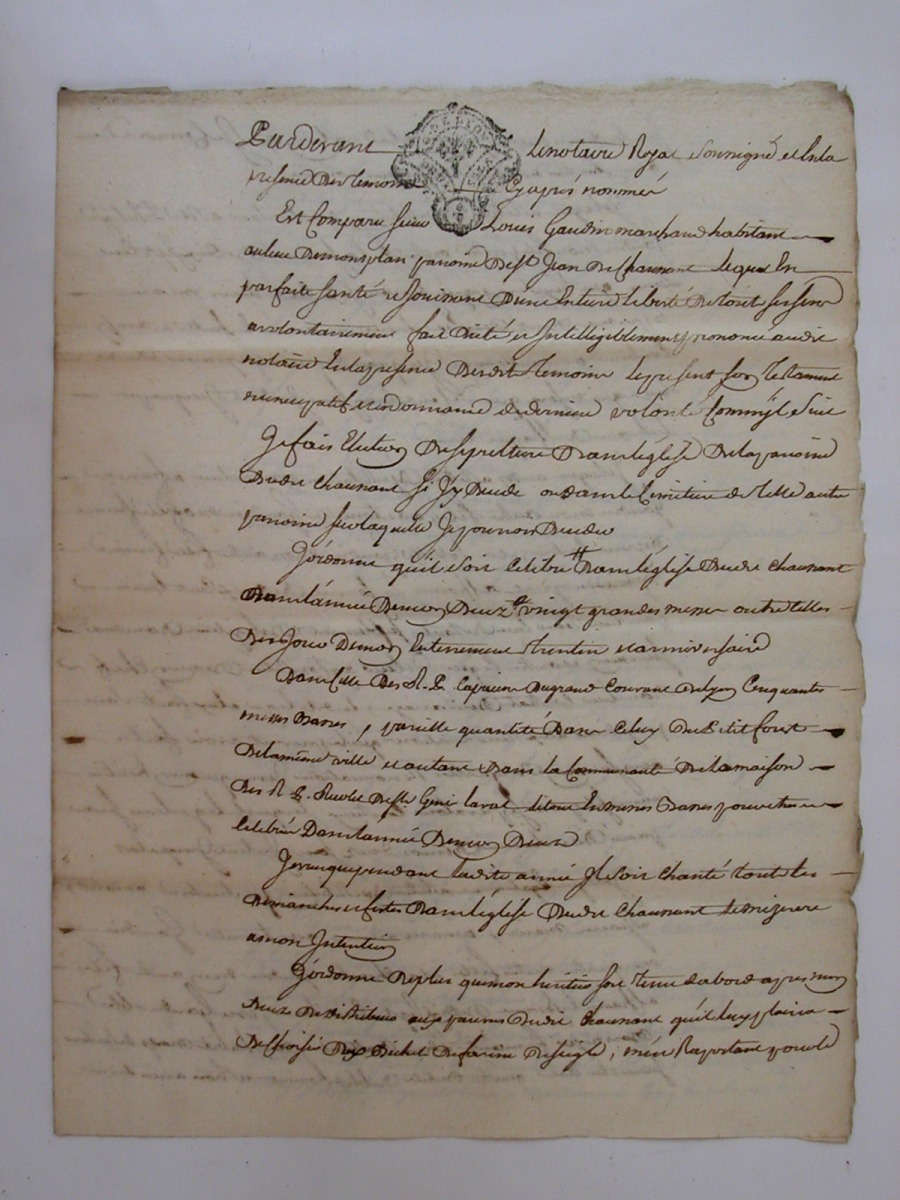 Pardevant le notaire Royal soussigné et en la
presence des temoins cy après nommés
Est Comparu sieur Louis Gaudin marchand habitant
au lieu de monsplan parroisse de St Jean de Chaussant lequel En
parfaite santé et jouissant d'une Entiere liberté de tous ses sens
a volontairement fait dicté et Intelligiblement prononcé audit
notaire En la presence desdit temoins le present son testament
nuncupatif et ordonnance de derniere volonté Comm'jl suit
Je fais Election de sepulture dans l'église de la parroisse
dudit Chaussant si j'y decede ou dans le Cimetiere de telle autre
parroisse sur laquelle Je pourrois deceder
J'ordonne qu'il soit celebré dans l'église dudit chaussant
dans l'année de mon deuzes vingt grandes messes outre celles
des jours de mon Enterrement trentin et anniversaire
Dans celle des R. P. Capucins du grand Couvant de lyon Cinquante
messes basses, pareille quantité dans celuy du Petit forest
de la même ville et autant dans la Communauté de la maison
des R. P. Recolet de St Geni laval lesdites Enmesses basses pour etre
celebrée Dans l'année de mon deces
Je veux que pendant ladite année jl soit chanté tout les
dimanches et fettes dans l'église dudit chaussant le mizerere
a mon Intention
J'ordonne de plus que mon heritier soit tenu d'abord apres mon
deces de distribuer aux pauvres dudit chaussant qu'il luy plaira
de choisir dix bichet de farine de seigle, m'en Raportant pour le